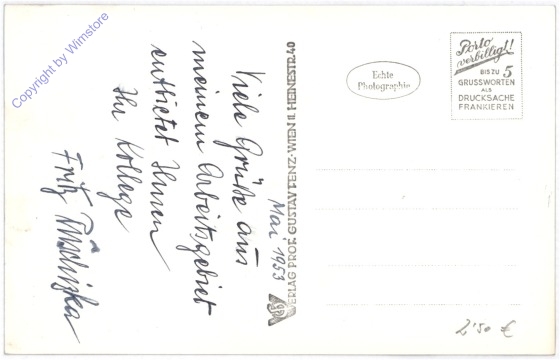 Viele Grüße aus
meinem Arbeitsgebiet
entbietet Ihnen
Ihr Kollege
Fritz
Mai 1953
VERLAG PROF. GUSTAV TENZ·WIEN II. HEINESTR. 40
Echte
Photographie
Porto
verbilligt!
BIS ZU 5
GRUSSWORTEN
ALS
DRUCKSACHE
FRANKIEREN
2'50 €
Copyright by Wimstore